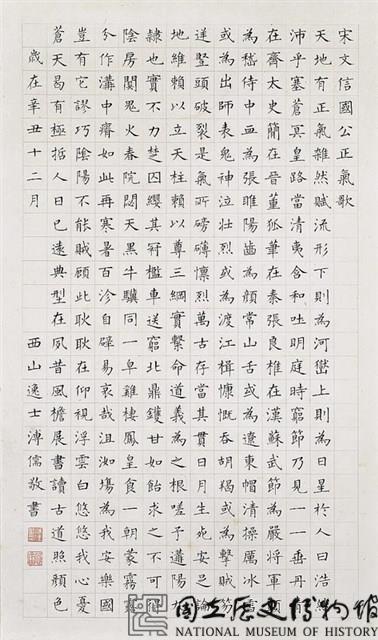 宋文信國公正氣歌
天地有正氣雜然賦流形下則為河嶽上則為日星於人曰浩然
沛乎塞蒼冥皇路當清夷含和吐明庭時窮節乃見一一垂丹青
在齊太史簡在晉董狐筆在秦張良椎在漢蘇武節為嚴將軍頭
為嵇侍中血為張睢陽齒為顏常山舌或為遼東帽清操厲冰雪
或為出師表鬼神泣壯烈或為渡江楫慷慨吞胡羯或為擊賊笏
逆豎頭破裂是氣所磅礴懍烈萬古存當其貫日月生死安足論
地維賴以立天柱賴以尊三綱實繫命道義為之根嗟予遘陽九
隸也實不力楚囚纓其冠檻車送窮北鼎鑊甘如飴求之不可得
陰房闃鬼火春院閟天黑牛驥同一皁雞棲鳳皇食一朝蒙霧露
分作溝中瘠如此再寒暑百沴自辟易哀哉沮洳場為我安樂國
豈有它謬巧陰陽不能賊顧此耿耿在仰視浮雲白悠悠我心憂
蒼天曷有極哲人日已遠典型在夙昔風檐展書讀古道照顏色
歲在辛丑十二月 西山逸士溥儒敬書
國立歷史博物館
NATIONAL MUSEUM OF HISTORY